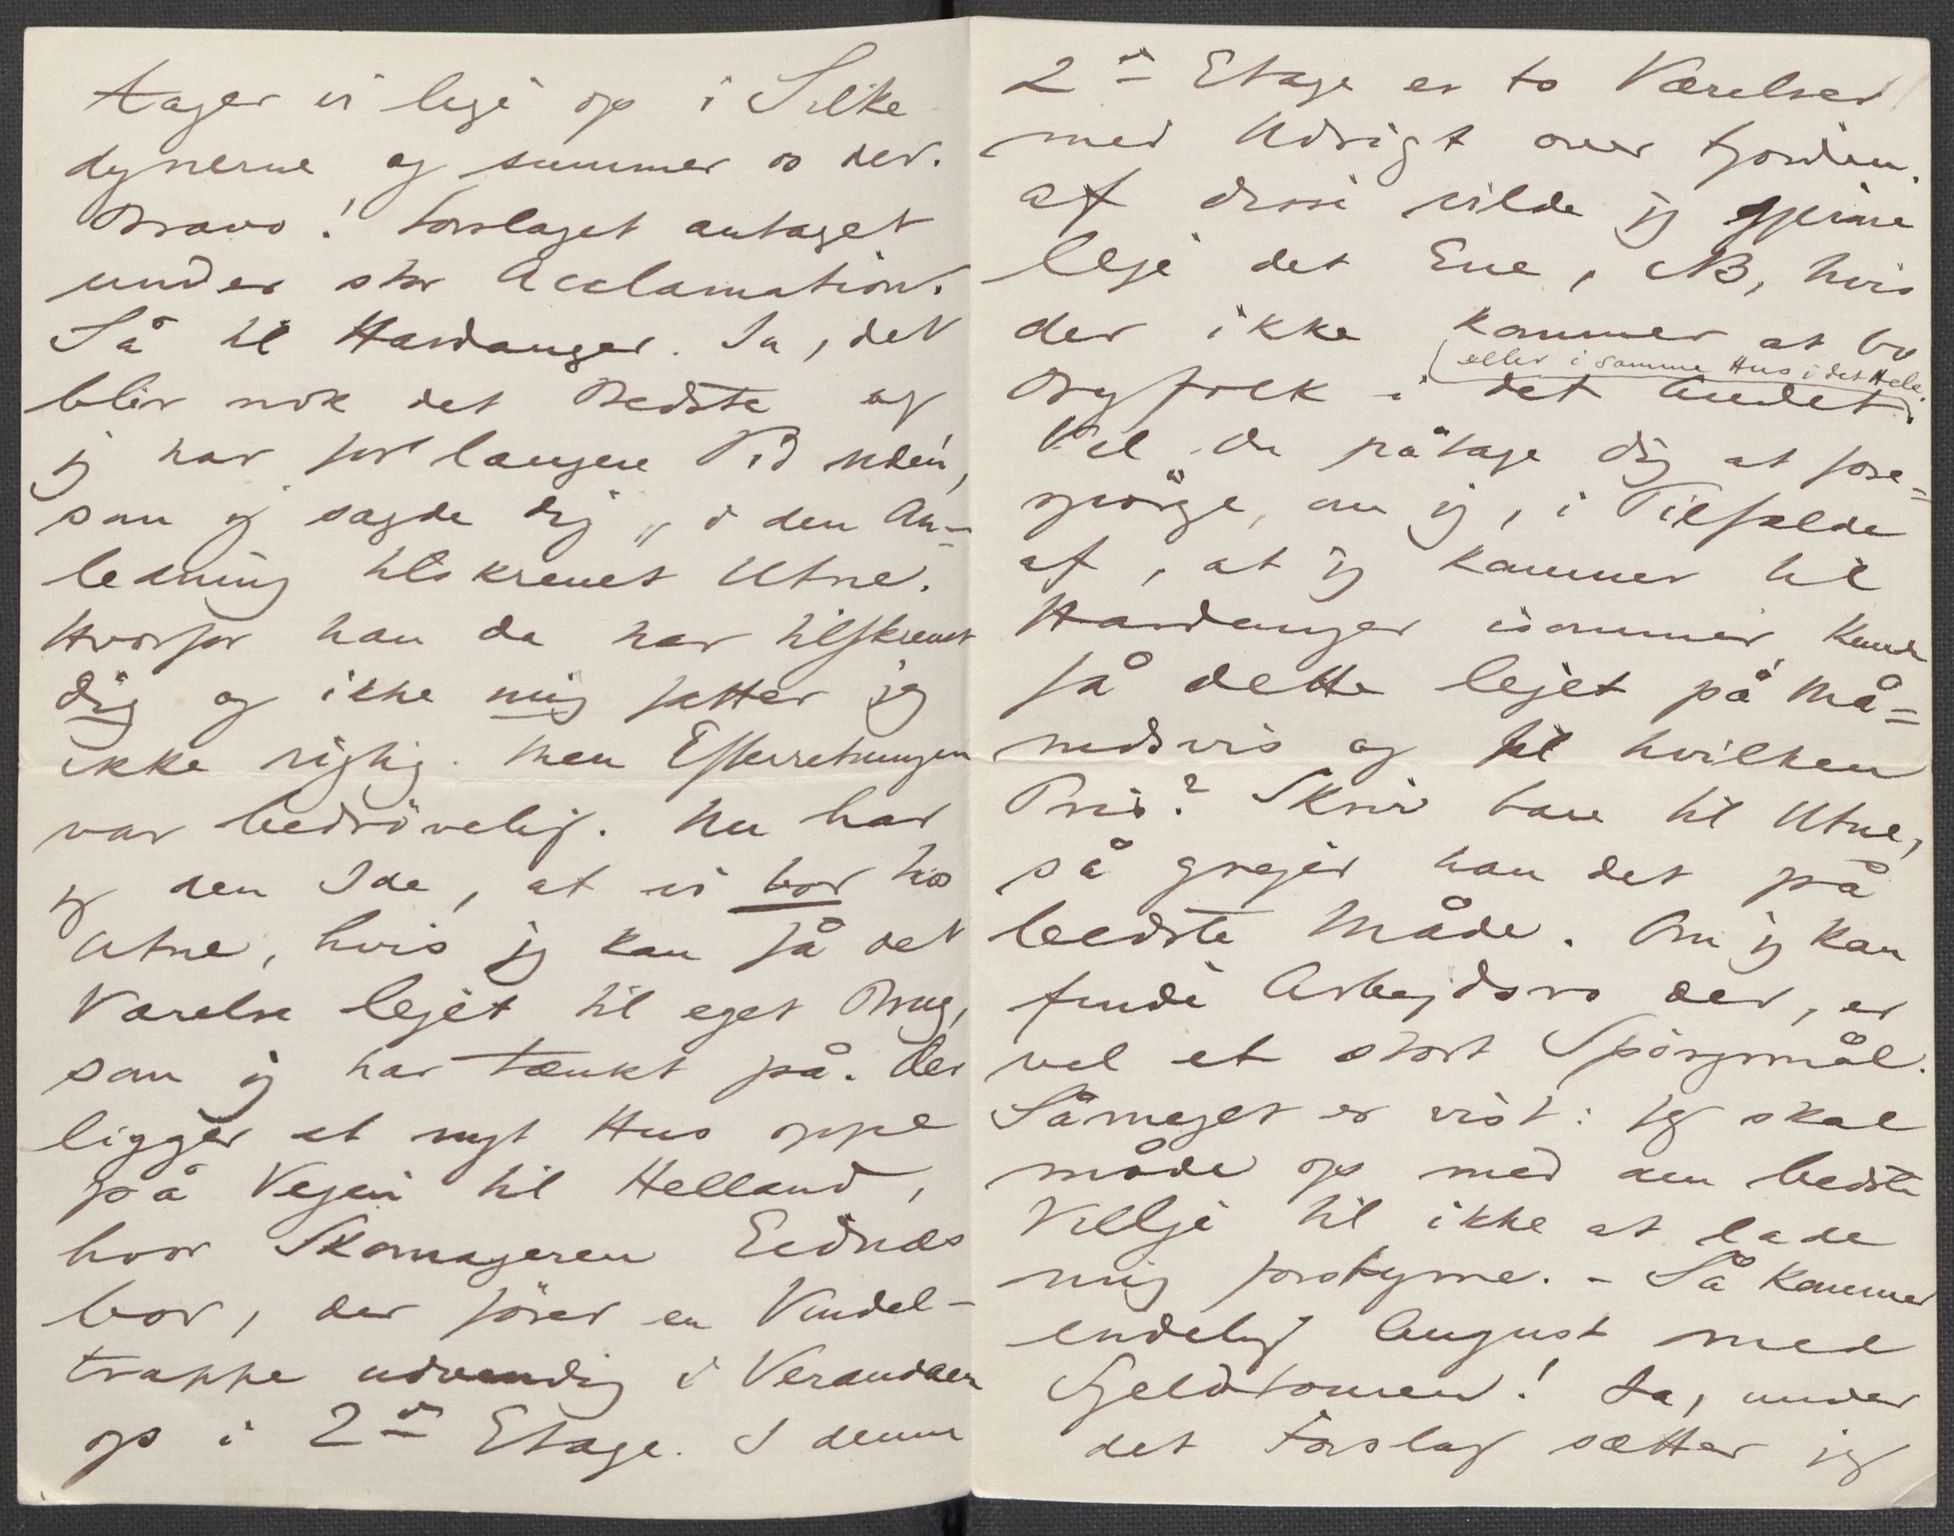 tager vi lige op i Silke-
dynerne og summer os der.
Bravo! Forslaget antaget
under stor Acclamation.
Så til Hardanger. Ja, det
blir nok det Bedste og
jeg har for længere Tid siden,
som jeg sagde dig, i den An-
ledning tilskrevet Utne.
Hvorfor han da har tilskrevet
dig og ikke mig fatter jeg
ikke rigtig. Men Efterretningen
var bedrövelig. Nu har
jeg den Ide, at vi bor hos
Utne, hvis jeg kan få det
Værelse lejet til eget Brug,
som jeg har tænkt på. Der
ligger et nyt Hus oppe
på Vejen til Helland,
hvor Skomageren Eidnæs
bor, der förer en Vindel-
trappe udvendig i Verandaen
op i 2den Etage. I denne
2den Etage er to Værelser
med Udsigt over Fjorden.
Af disse vilde jeg gjerne
leje det Ene, NB, hvis
der ikke kommer at bo
eller i samme Hus i det Hele.
Byfolk i det Andet.
Vil du påtage dig at fore-
spörge, om jeg, i Tilfælde
af, at jeg kommer til
Hardanger isommer, kunde
få dette lejet på Må-
nedsvis og til hvilken
Pris? Skriv bare til Utne,
så grejer han det på
bedste Måde. Om jeg kan
finde Arbejdsro der, er
vel et stort Spörgsmål.
Såmeget er vist: jeg skal
möde op med den bedste
Vilje til ikke at lade
mig forstyrre. – Så kommer
endelig August med
Fjeldtouren! Ja, under
det Forslag sætter jeg